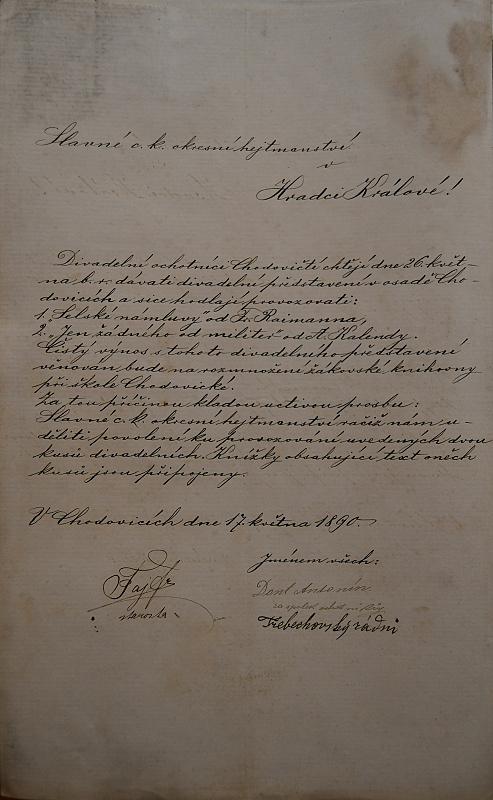 Slavné c. k. okresní hejtmanství
v
Hradci Králové!
Divadelní ochotníci Chodovičtí chtějí dne 26. květ-
na b. r. dávati divadelní představení v osadě Cho-
dovicích a sice hodlají provozovati:
1. „Selské námluvy" od F. Raimanna,
2. „Jen žádného od militer" od A. Kalendy.
Čistý výnos s tohoto divadelního představení
věnován bude na rozmnožení žákovské knihovny
při škole Chodovické.
Za tou příčinou kladou uctivou prosbu:
Slavné c. k. okresní hejtmanství račiž nám u-
děliti povolení ku provozování uvedených dvou
kusů divadelních. Knížky obsahující text oněch
kusů jsou připojeny.
V Chodovicích dne 17. května 1890.
Jménem všech:
Fajfr
starosta
Antonín
Třebechovský rádní